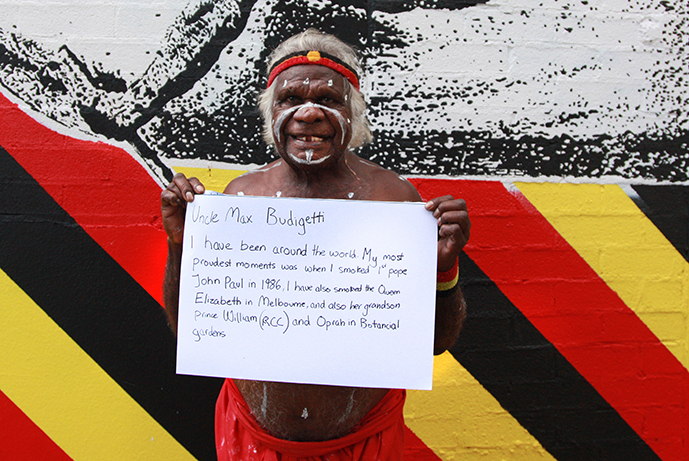 Uncle Max Budigetti
I have been around the world. My most
proudest moments was when I smoked 1st pope
John Paul in 1986, I have also smoked the Queen
Elizabeth in Melbourne, and also her grandson
prince William (RCC) and Oprah in Botancial
gardens